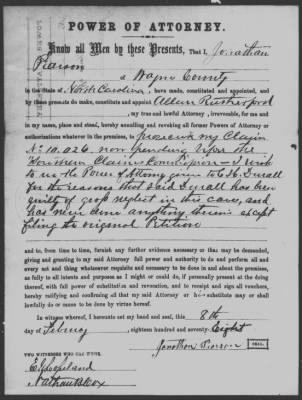 POWER OF ATTORNEY.
Know all Men by these Presents, That I, Jonathan
Pearson
of Wayne County
in the State of North Carolina, have made, constituted and appointed, and
by these presents do make, constitute and appoint Allen Rutherford
my true and lawful Attorney, irrevocable, for me and
in my name, place and stead, hereby annulling and revoking all former Powers of Attorney or
authorizations whatever in the premises, to prosecute my Claim
No 10,026, now pending before the
Southern Claims Commission — I wish
to revoke the Power of Attorney given to
for the reasons that said Durall has been
guilty of gross neglect in this case, and
has never done anything therein except
filing the original Petition
and to, from time to time, furnish any further evidence necessary or that may be demanded,
giving and granting to my said Attorney full power and authority to do and perform all and
every act and thing whatsoever requisite and necessary to be done in and about the premises,
as fully to all intents and purposes as I might or could do, if personally present at the doing
thereof, with full power of substitution and revocation, and to receipt and sign all vouchers,
hereby ratifying and confirming all that my said Attorney or his substitute may or shall
lawfully do or cause to be done by virtue hereof.
In witness whereof, I hereunto set my hand and seal, this 8th
day of Febry eighteen hundred and seventy-Eight
Jonathan Pearson [SEAL.]
TWO WITNESSES WHO CAN WRITE.
Nathan B Cox
POWER OF ATTORNEY